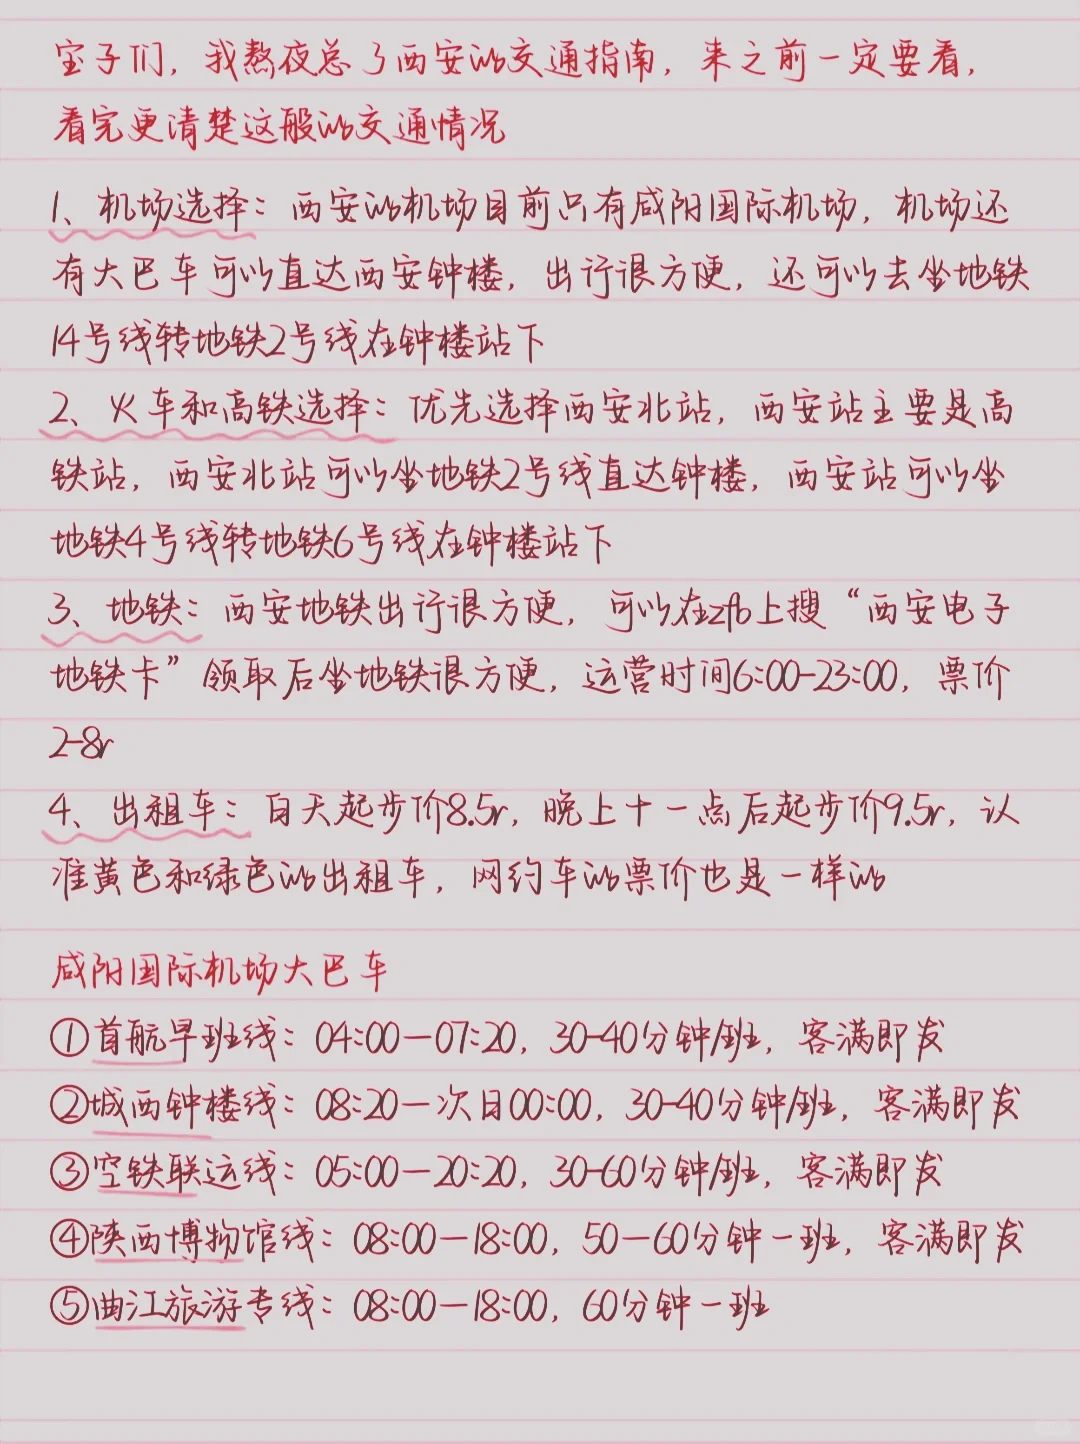 宝子们，我熬夜总了西安的交通指南，来之前一定要看，
看完更清楚这般的交通情况
1、机场选择：西安的机场目前只有咸阳国际机场，机场还
有大巴车可以直达西安钟楼，出行很方便，还可以去坐地铁
14号线转地铁2号线在钟楼站下
2、火车和高铁选择：优先选择西安北站，西安站主要是高
铁站，西安北站可以坐地铁2号线直达钟楼，西安站可以坐
地铁4号线转地铁6号线在钟楼站下
3、地铁：西安地铁出行很方便，可以在zfb上搜“西安电子
地铁卡”领取后坐地铁很方便，运营时间6:00-23:00，票价
2-8r
4、出租车：白天起步价8.5r，晚上十一点后起步价9.5r，认
准黄色和绿色的出租车，网约车的票价也是一样的
咸阳国际机场大巴车
①首航早班线：04:00—07:20，30-40分钟/班，客满即发
②城西钟楼线：08:20—次日00:00，30-40分钟/班，客满即发
③空铁联运线：05:00—20:20，30-60分钟/班，客满即发
④陕西博物馆线：08:00—18:00，50—60分钟一班，客满即发
⑤曲江旅游专线：08:00—18:00，60分钟一班